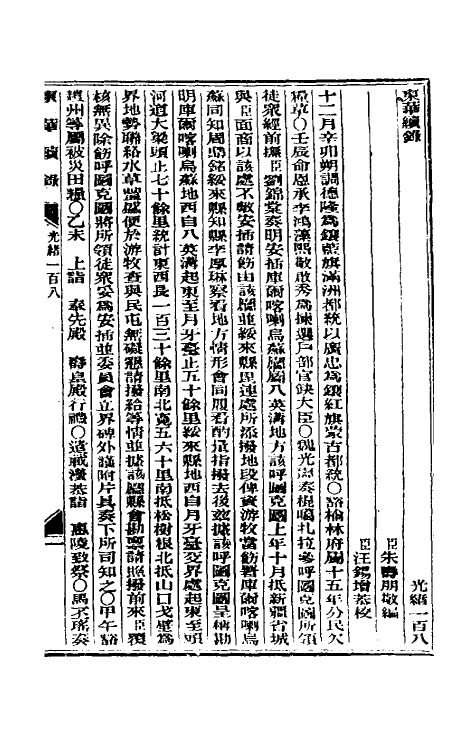 東華續錄
光緒一百八
臣朱壽朋敬編
臣汪錫增恭校
十二月辛卯朔調德隆為鑲藍旗滿洲都統以廣忠為鑲紅旗蒙古都統〇豁榆林府屬十五年分民欠
糧草〇壬辰命盧承李鴻藻熙敬敢秀為揀選戶部官缺大臣〇魏光燾奏棍噶扎拉參呼圖克圖所領
徒眾經前撫臣劉錦棠奏明安插庫爾喀喇烏蘇廳屬八英溝地方該呼圖克圖上年十月抵新疆省城
與臣面商以該處不敷安插請飭由該廳並綏來縣毘連處所添撥地段俾資游牧當飭署庫爾喀喇烏
蘇同知周鼎銘綏來縣知縣李原琳察看地方情形會同履看酌量指撥去後茲據該呼圖克圖呈稱勘
明庫爾喀喇烏蘇地西自八英溝起東至月牙臺止五十餘里綏來縣地西自月牙臺交界處起東至頭
河道大梁頭止七十餘里統計東西長一百二十餘里南北寬五六十里南抵松樹根北抵山口戈壁為
界地勢聯絡水草豐盛便於游牧查與民屯無礙懇請撥給等情並據該廳縣會勘籲請照撥前來臣覆
核無異除飭呼圖克圖將所領徒眾妥為安插並委員會立界碑外謹附片具奏下所司知之〇甲午豁
趙州等屬被災田糧〇乙未　上詣　奉先殿　壽皇殿行禮〇遣載濩恭詣　惠陵致祭〇馬丕瑤奏
東華續錄
光緒一百八